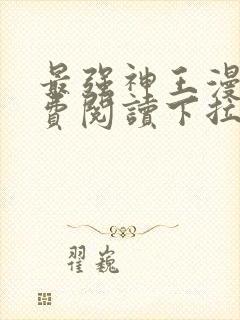 最強神王漫
費閱讀下拉
翟巍